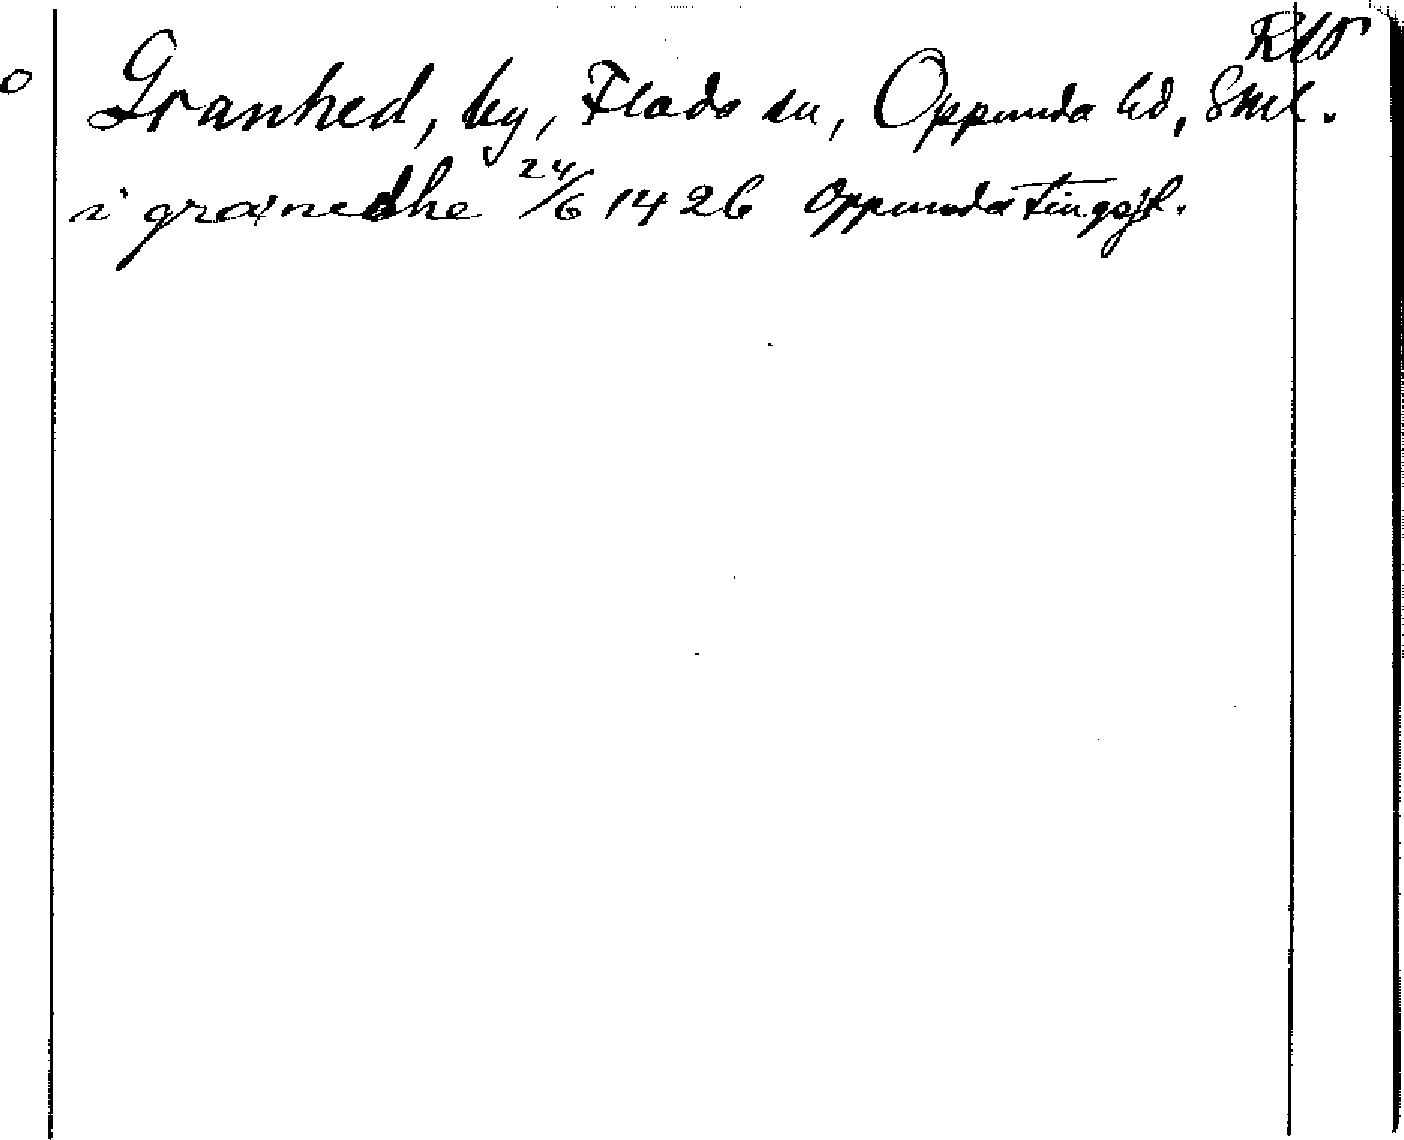 Granhed, by, Floda sn, Oppunda hd, Sml.
i granedhe 24/6 1426 Oppunda tingsjb.